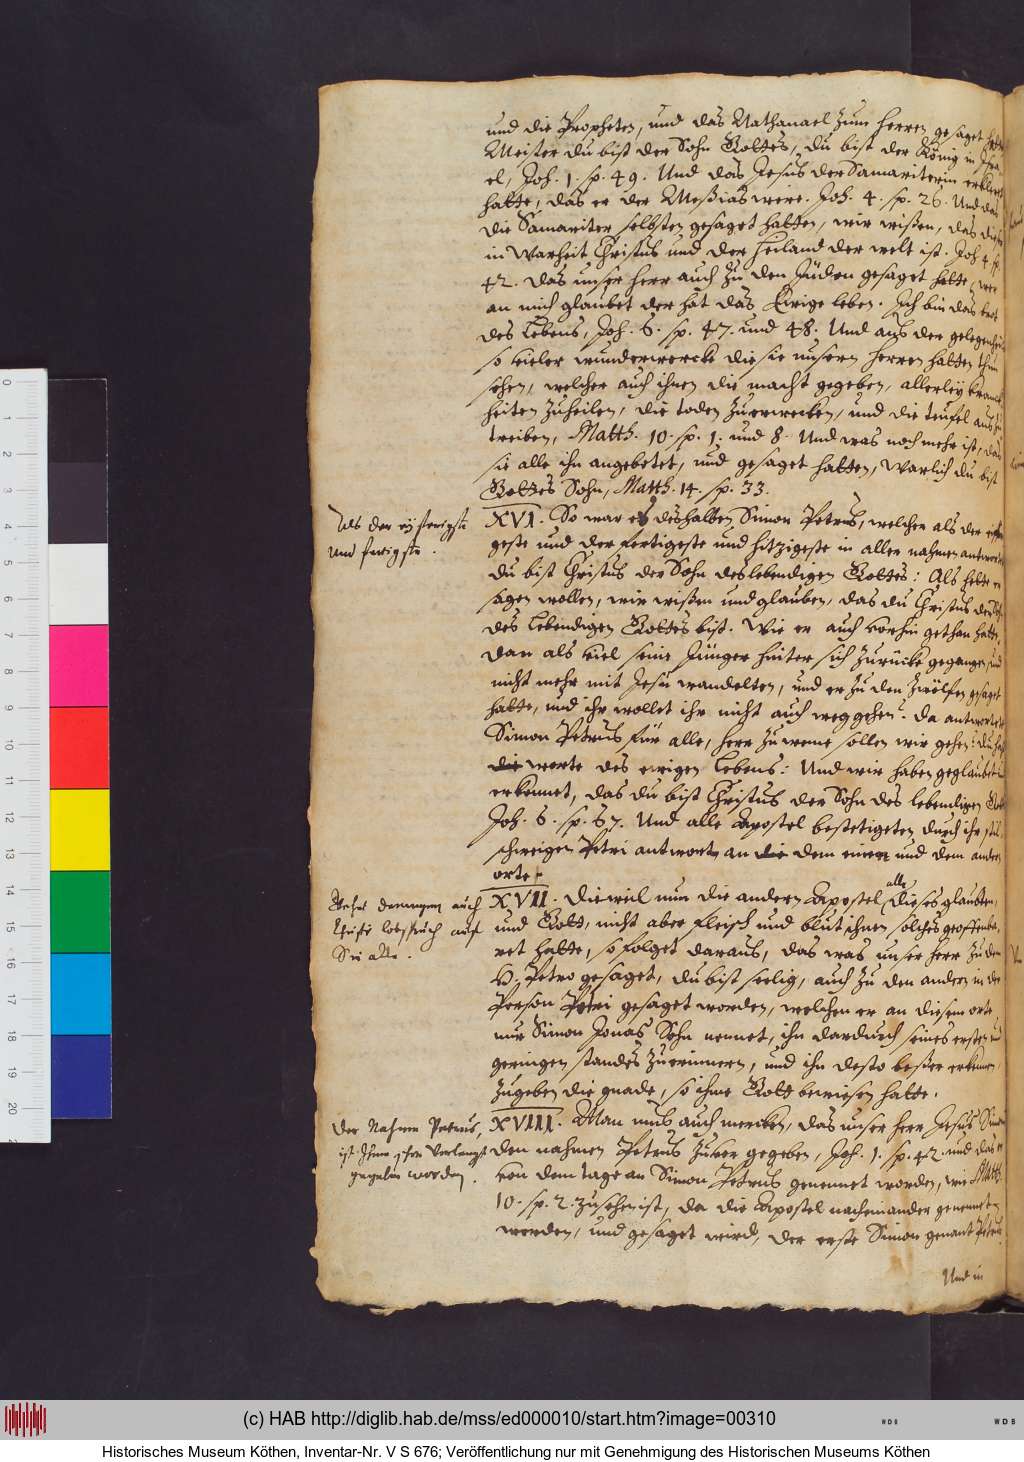 und die Propheten, und das Nathanael zum herren gesaget hatte
Meister du bist der Sohn Gottes, du bist der König in Isra
el, Joh. 1. sp. 49. Und das Jesus der Samariterin erkleret
hatte, das er der Meßias were. Joh. 4. sp. 26. Und das
die Samariter selbsten gesaget hatten, wir wißen, das dieser
in Warheit Christus und der heiland der welt ist. Joh 4. sp.
42. das unser herr auch zu den Jüden gesaget hatte, wer
an mich glaubet der hat das Ewige leben. Ich bin das brot
des Lebens, Joh. 6. sp. 47. und 48. Und aus der gelegenheit
so vieler wunderwercke die sie unsern herren hatten thun
sehen, welcher auch ihnen die macht gegeben, allerley kranck
heiten zuheilen, die toden zuerwecken, und die teufel aus zu
treiben, Matth. 10. sp. 1. und 8. Und was noch mehr ist, das
sie alle ihn angebetet, und gesaget hatten, Warlich du bist
Gottes Sohn, Matth. 14. sp. 33.
Als der eyferigste
und hurigste.
XVI. So war es deshalben Simon Petrus, welcher als der eifri
geste und der fertigeste und hitzigeste in aller nahmen antwortet
du bist Christus der Sohn des lebendigen Gottes: Als hette er
sagen wollen, wir wißen und glauben, das du Christus der Sohn
des Lebendigen Gottes bist. Wie er auch vorhin gethan hatte,
dan als viel seine Jünger hinter sich zurücke gegangen, und
nicht mehr mit Jesu wandelten, und er zu den Zwölfen gesaget
hatte, und ihr wollet ihr nicht auch weggehen? da antwortete
Simon Petrus für alle, herr zu weme sollen wir gehen? du hast
die worte des ewigen Lebens: Und wir haben geglaubet und
erkennet, das du bist Christus der Sohn des lebendigen Got
Joh. 6. sp. 67. Und alle Apostel bestetigeten durch ihr stil
schweigen Petri antwort an die dem einen und dem andern
orte.
Rehet derwegen auch
Christi lobspruch auf
Sie alle.
XVII. Dieweil nun die andern Apostel alle dieses glaubten,
und Gott, nicht aber fleisch und blut ihnen solches geoffenba,
ret hatte, so folget daraus, das was unser herr zu dem
h. Petro gesaget, du bist seelig, auch zu den andern in der
Person Petri gesaget worden, welchen er an diesem orte
nur Simon Jonas Sohn nennet, ihn dardurch seines ersten und
geringen standes zuerinnern, und ihn desto beßer erkennen
zugeben die gnade, so ihme Gott bewiesen hatte.
Der Nahme Petrus,
ist Ihme schon Vorlengst
gegeben worden.
XVIII. Man mus auch mercken, das unser herr Jesus Simon
den nahmen Petrus zuvor gegeben, Joh. 1. sp. 42. und das er
von dem tage an Simon Petrus genennet worden, wie Matth.
10. sp. 2. zusehen ist, da die Apostel nacheinander genennet
werden, und gesaget wird, der erste Simon genant Petrus
Und in
0
1
2
3
4
5
6
7
8
9
10
11
12
13
14
15
16
17
18
19
20
(c) HAB http://diglib.hab.de/mss/ed000010/start.htm?image=00310
WDB
WDB
Historisches Museum Köthen, Inventar-Nr. V S 676; Veröffentlichung nur mit Genehmigung des Historischen Museums Köthen